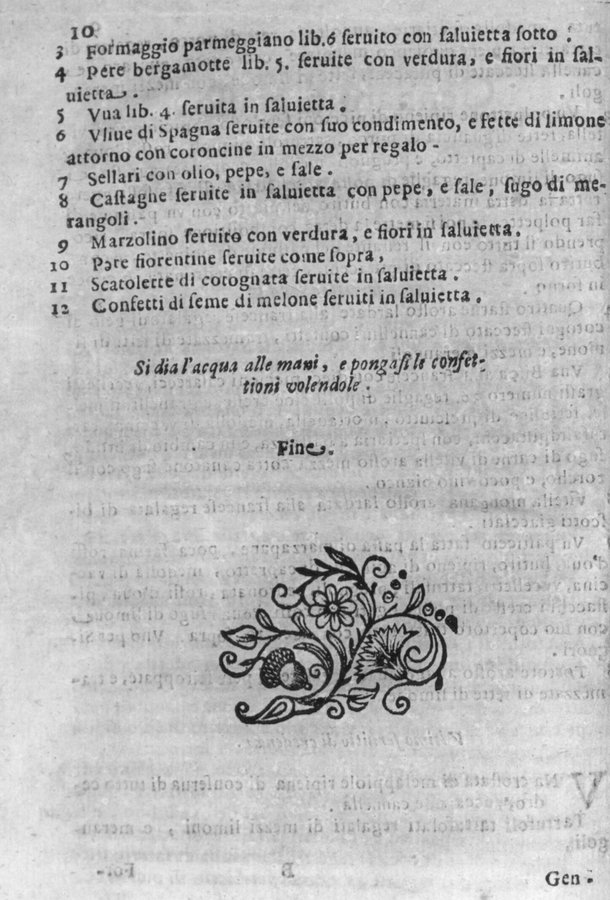 10
3 Formaggio parmeggiano lib.6 ſeruito con ſaluietta ſotto .
4 Pere bergamotte lib. 5. ſeruite con verdura, e fiori in ſal-
uietta .
5 Vua lib. 4. ſeruita in ſaluietta .
6 Vliue di Spagna ſeruite con ſuo condimento, e fette di limone
attorno con coroncine in mezzo per regalo -
7 Sellari con olio, pepe, e ſale .
8 Caſtagne ſeruite in ſaluietta con pepe, e ſale, ſugo di me-
rangoli .
9 Marzolino ſeruito con verdura, e fiori in ſaluietta .
10 Pere fiorentine ſeruite come ſopra ,
11 Scatolette di cotognata ſeruite in ſaluietta .
12 Confetti di ſeme di melone ſeruiti in ſaluietta .
Si dia l'acqua alle mani, e pongaſi le confet-
tioni volendole .
Fine.
Gen .